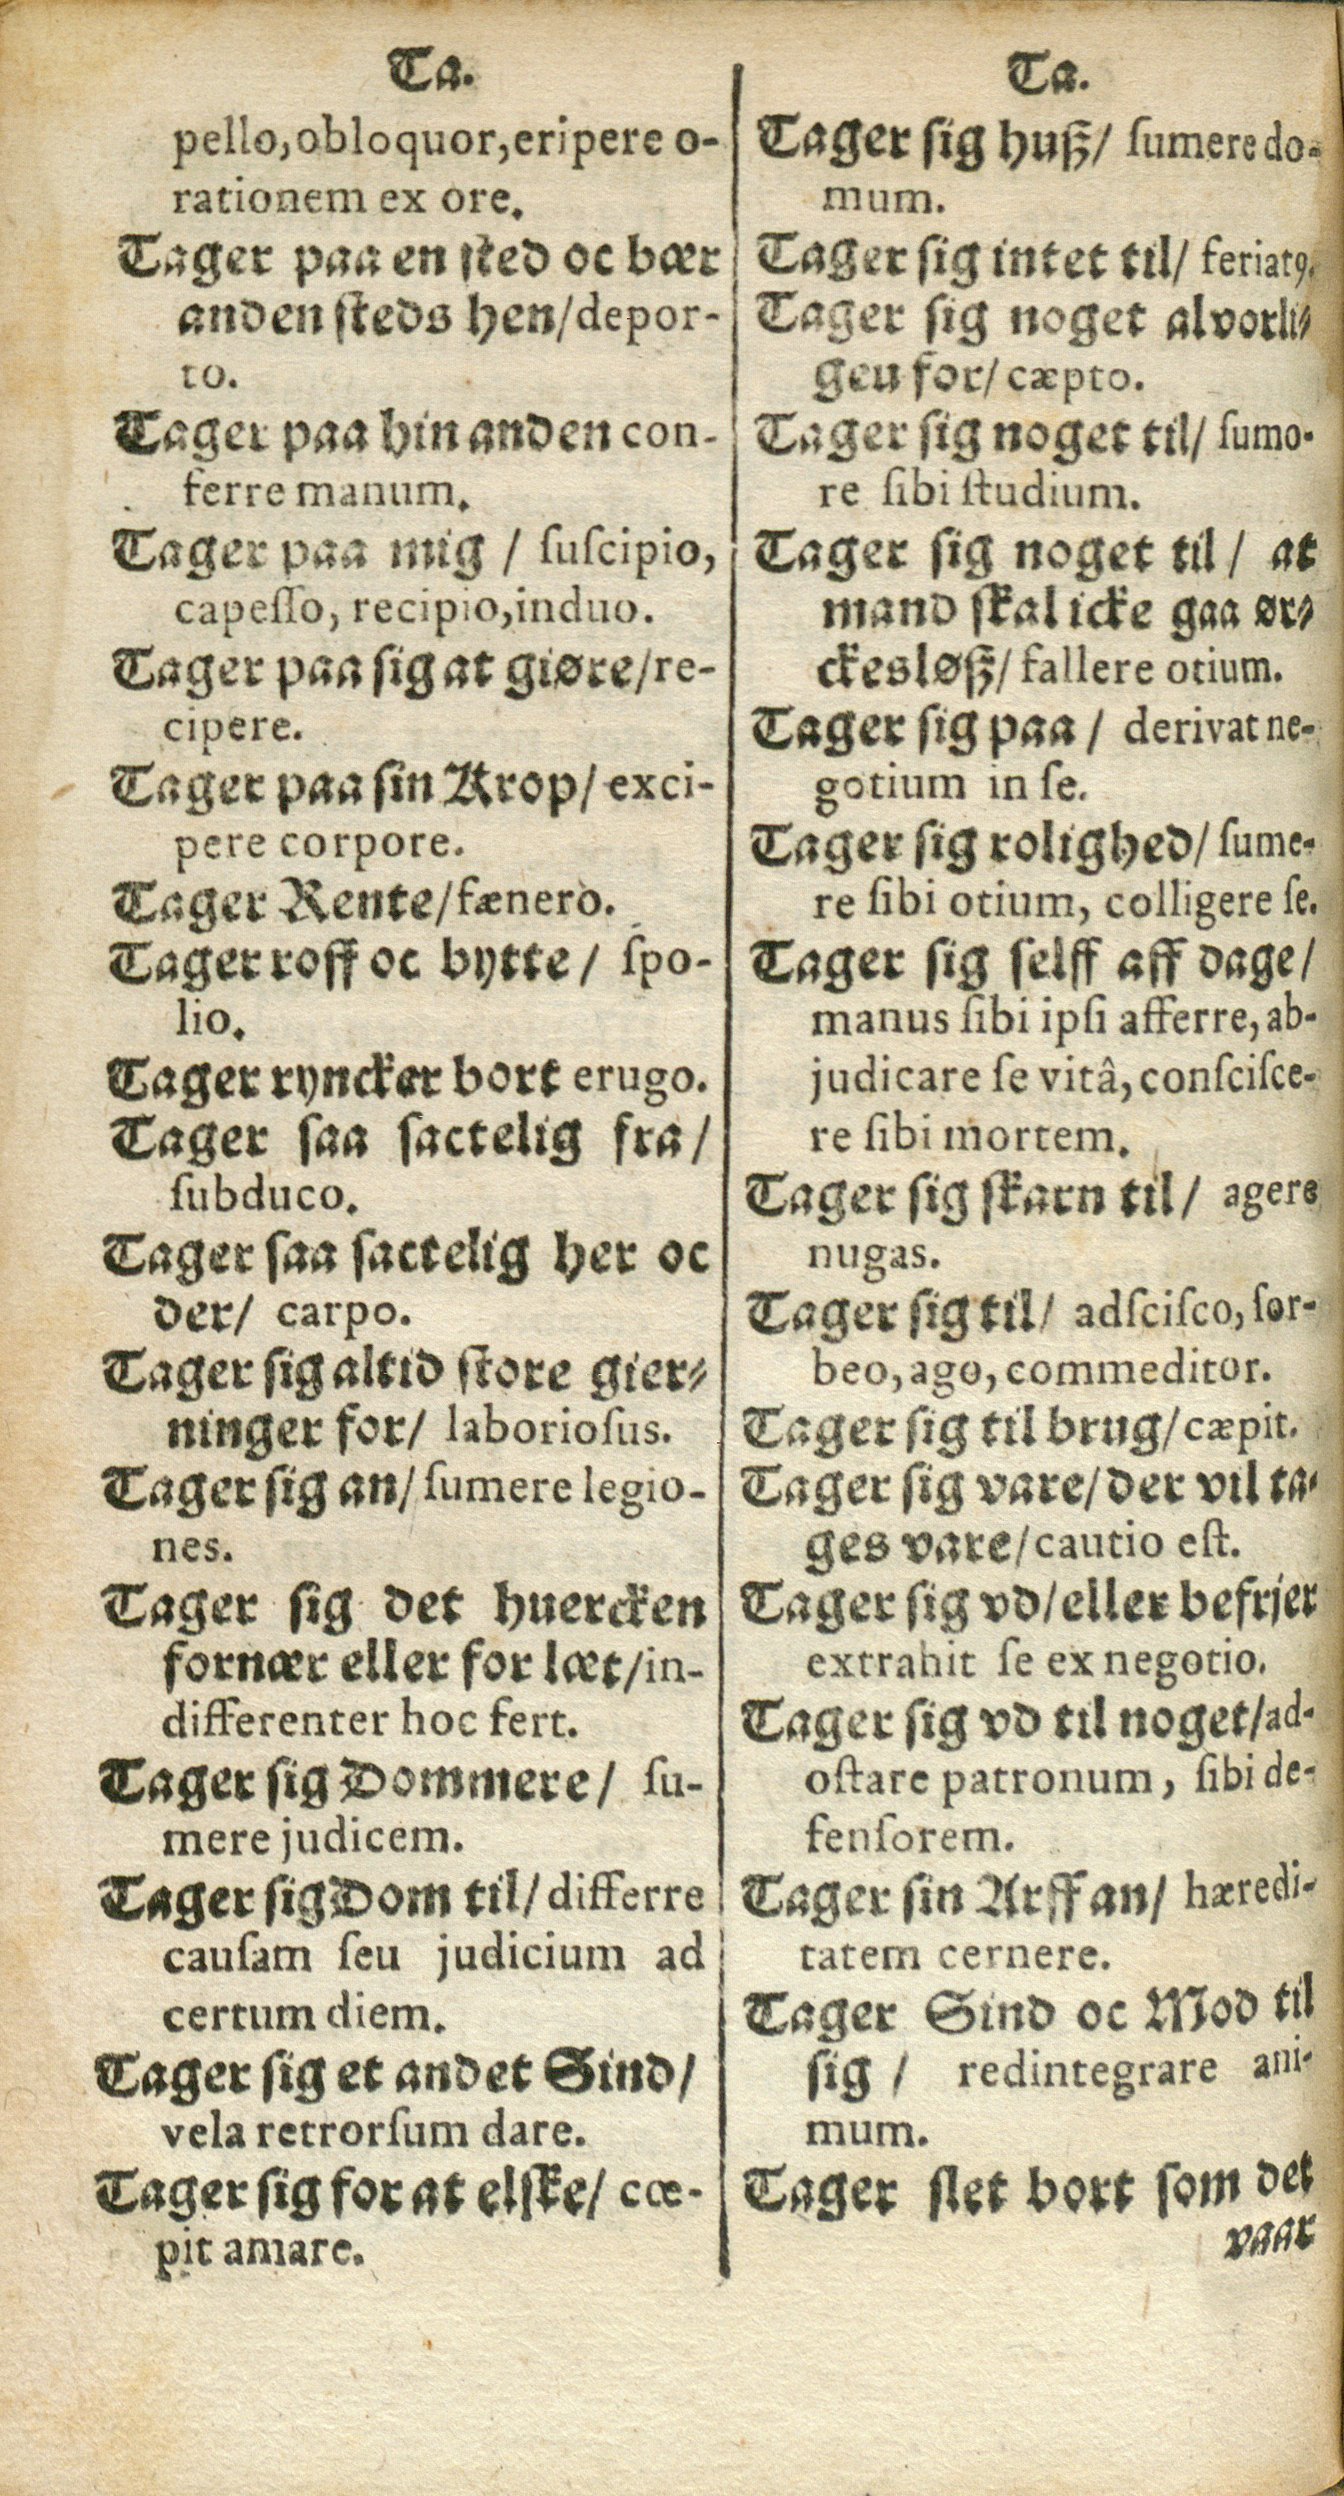 Ta.
pello, obloquor, eripere o-
rationem ex ore.
Tager paa en sted oc bær
anden steds hen/ depor-
to.
Tager paa hin anden con-
ferre manum.
Tager paa mig / ſuſcipio,
capeſſo, recipio, induo.
Tager paa ſig at giøre/ re-
cipere.
Tager paa ſin Krop/ exci-
pere corpore.
Tager Rente/ fænero.
Tager roff oc bytte/ ſpo-
lio.
Tager ryncker bort erugo.
Tager ſaa ſactelig fra/
ſubduco.
Tager ſaa ſactelig her oc
der/ carpo.
Tager ſig altid ſtore gier⸗
ninger for/ laborioſus.
Tager ſig an/ ſumere legio-
nes.
Tager ſig det huercken
fornær eller for læt/ in-
differenter hoc fert.
Tager ſig Dommere/ ſu-
mere judicem.
Tager ſig Dom til/ differre
cauſam ſeu judicium ad
certum diem.
Tager ſig et andet Sind/
vela retrorſum dare.
Tager ſig for at elſke/ cœ-
pit amare.
Ta.
Tager ſig huß/ ſumere do-
mum.
Tager ſig intet til/ feriatꝰ.
Tager ſig noget alvorli⸗
geu for/ cæpto.
Tager ſig noget til/ ſumo-
re ſibi ſtudium.
Tager ſig noget til/ at
mand ſkal icke gaa ør⸗
ckesløß/ fallere otium.
Tager ſig paa / derivat ne-
gotium in ſe.
Tager ſig rolighed/ ſume-
re ſibi otium, colligere ſe.
Tager ſig ſelff aff dage/
manus ſibi ipſi afferre, ab-
judicare ſe vitâ, conſciſce-
re ſibi mortem.
Tager ſig ſkarn til/ agere
nugas.
Tager ſig til/ adſciſco, ſor-
beo, ago, commeditor.
Tager ſig til brug/ cæpit.
Tager ſig vare/ der vil ta⸗
ges vare/ cautio eſt.
Tager ſig vd/ eller befrjer
extrahit ſe ex negotio.
Tager ſig vd til noget/ ad-
oſtare patronum, ſibi de-
fenſorem.
Tager ſin Arff an/ hæredi-
tatem cernere.
Tager Sind oc Mod til
ſig / redintegrare ani-
mum.
Tager ſlet bort ſom det
vaar